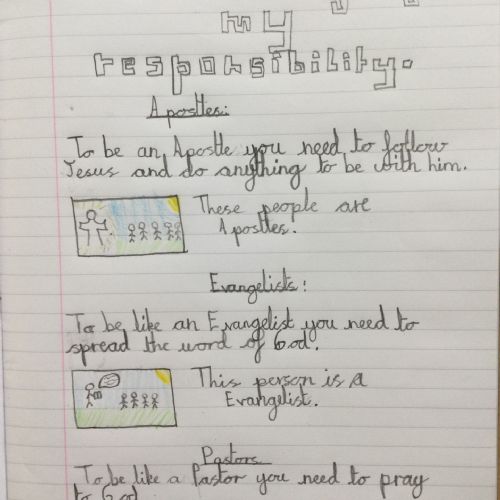 my
responsibility.
Apostles:
To be an Apostle you need to follow
Jesus and do anything to be with him.
These people are
Apostles.
Evangelists:
To be like an Evangelist you need to
spread the word of God.
This person is a
Evangelist.
Pastors
To be like a Pastor you need to pray
to God